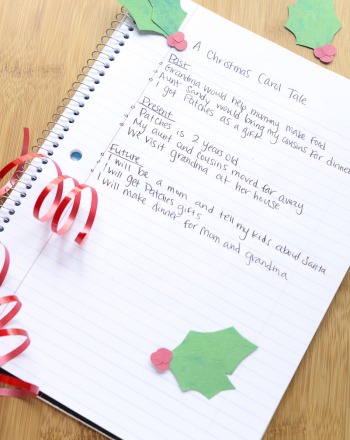 A Christmas Carol Tale
Past
Grandma would help mummy make food
Aunt Sandy would bring my cousins for dinner
I got Patches as a gift
Present
Patches is 2 years old
My aunt and cousins moved far away
We visit grandma at her house
Future
I will be a mum and tell my kids about Santa
I will get Patches gifts
I will make dinner for mom and grandma